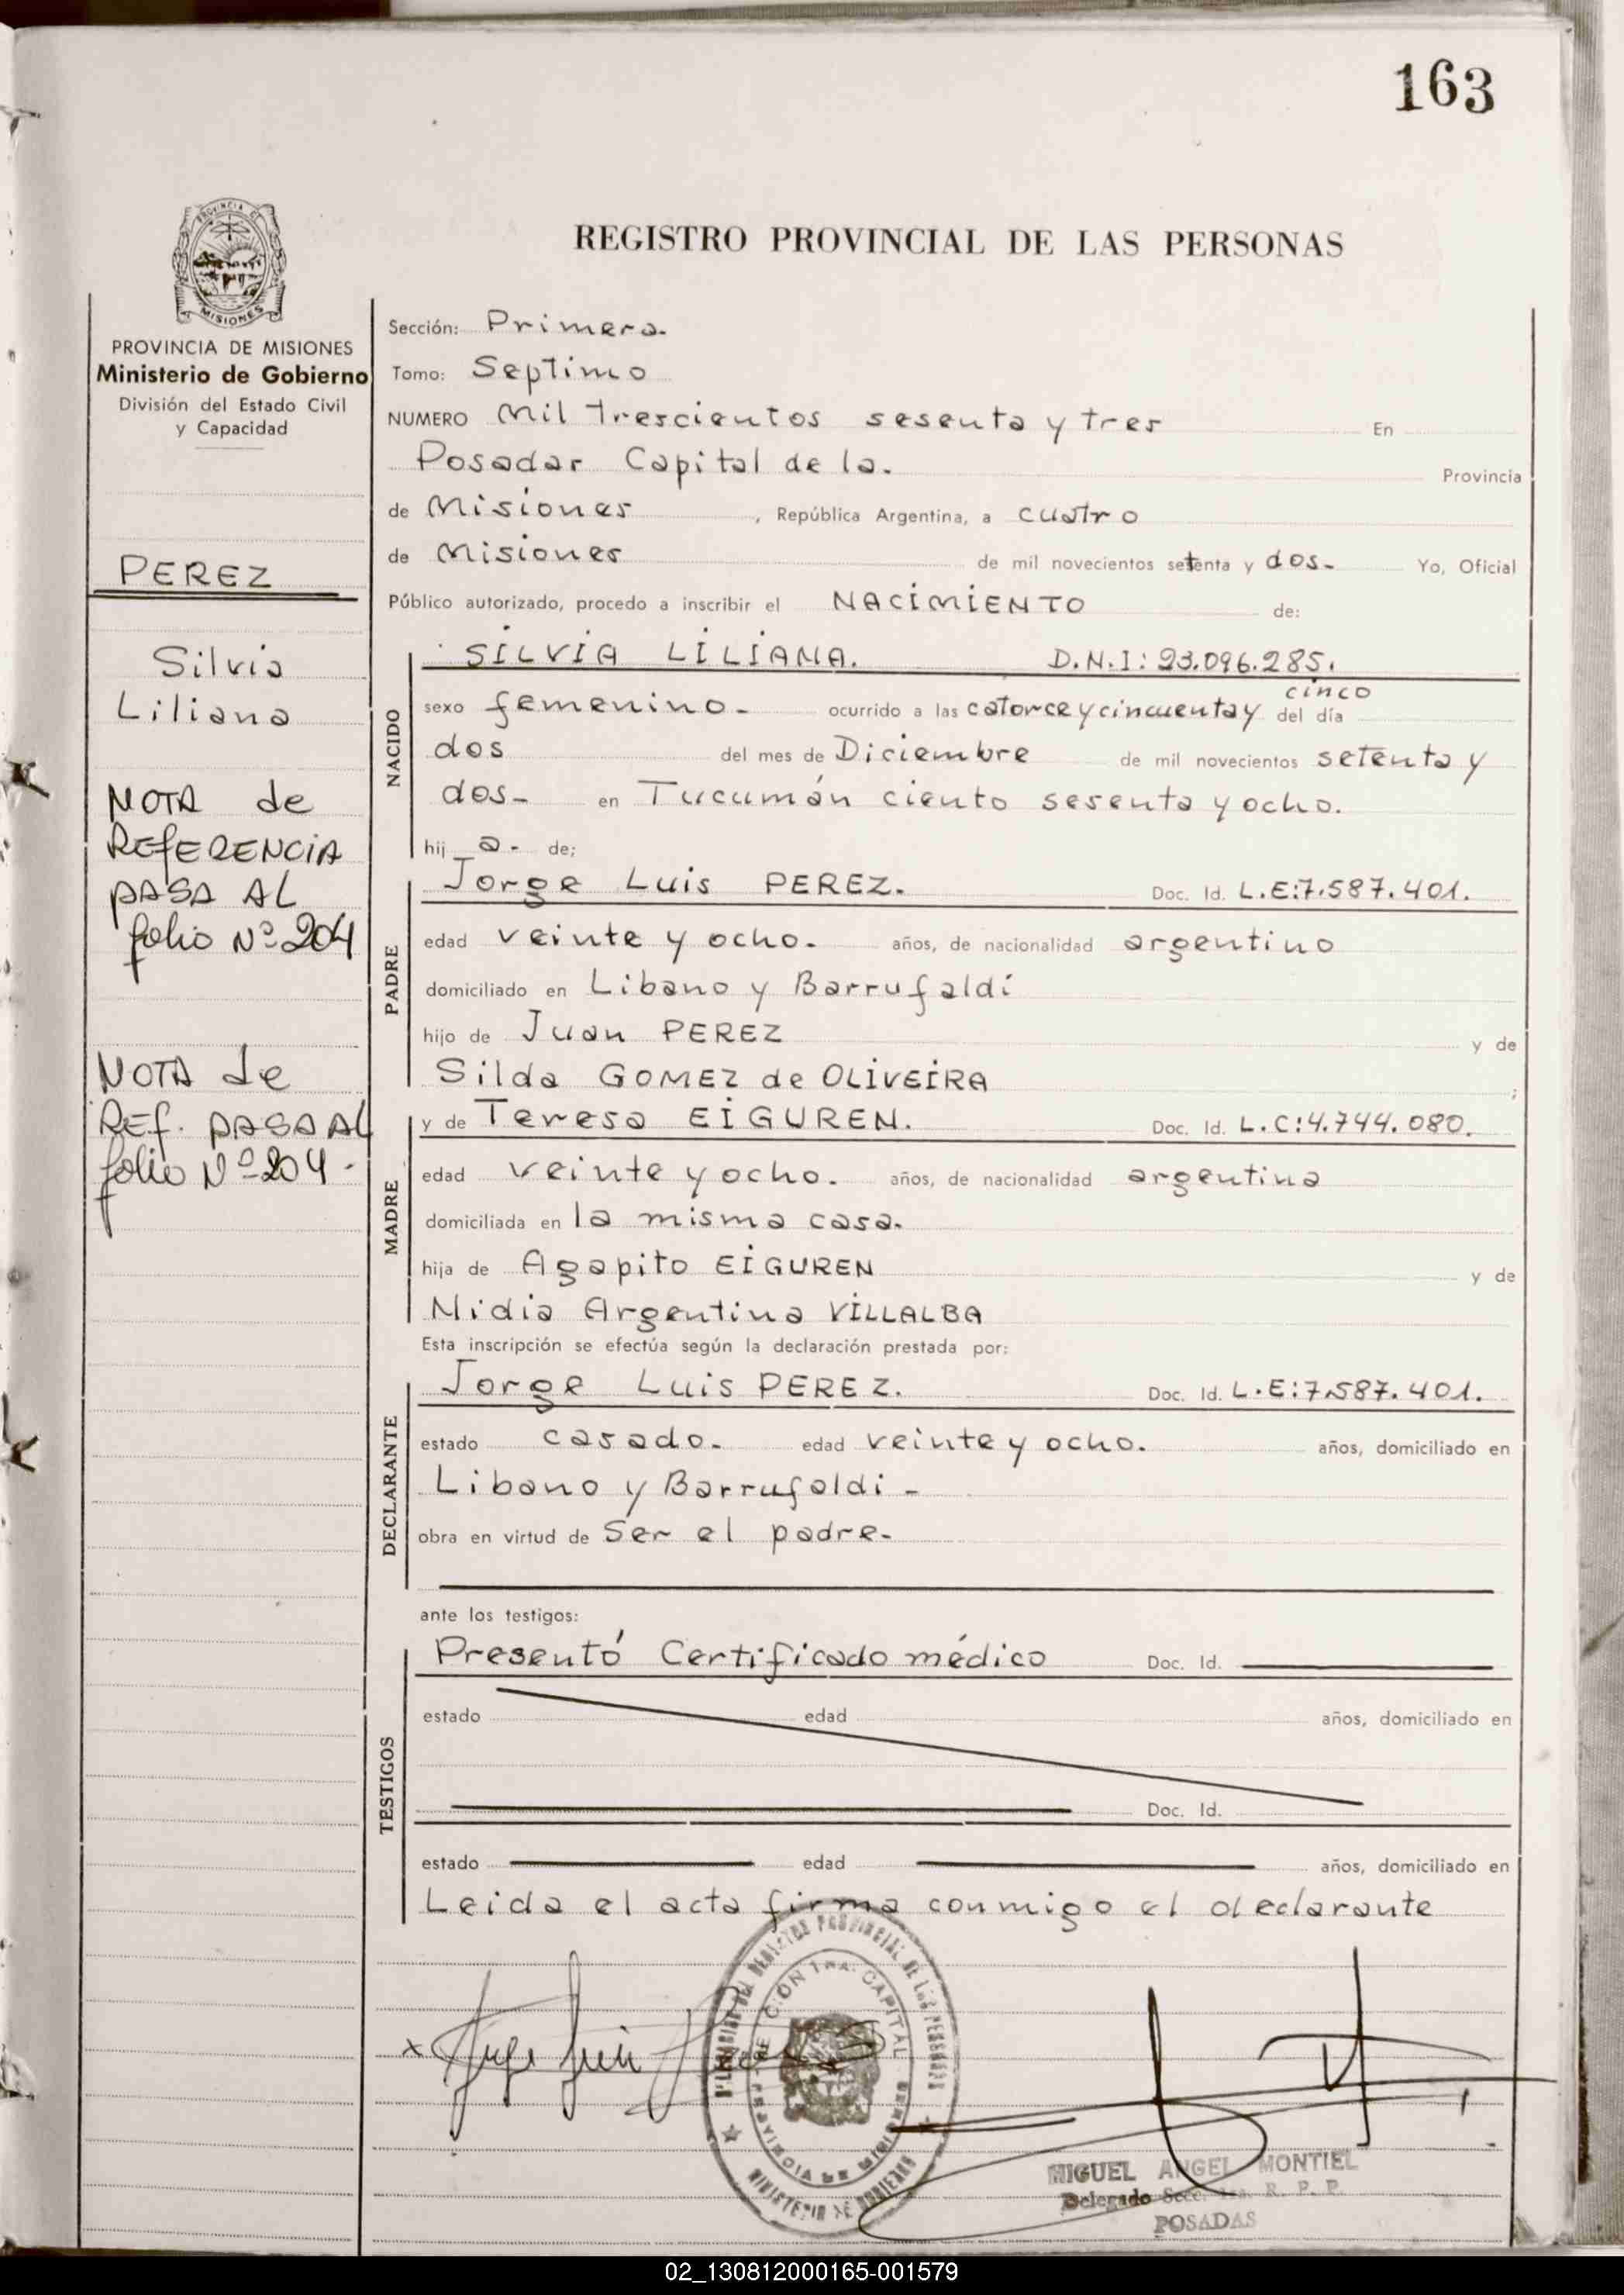 163
PROVINCIA DE
MISIONES
PROVINCIA DE MISIONES
Ministerio de Gobierno
División del Estado Civil
y Capacidad
PEREZ
Silvia
Liliana
NOTA de
REFERENCIA
PASA AL
folio Nº 204
NOTA de
REF. PASA AL
folio Nº 204-
REGISTRO PROVINCIAL DE LAS PERSONAS
Sección: Primera.
Tomo: Septimo
NUMERO Mil trescientos sesenta y tres En
Posadas Capital de la. Provincia
de Misiones, República Argentina, a cuatro
de Misiones de mil novecientos setenta y dos- Yo, Oficial
Público autorizado, procedo a inscribir el NACIMIENTO de:
NACIDO
SILVIA LILIANA. D.N.I: 23.096.285.
cinco
sexo femenino- ocurrido a las catorce y cincuenta y del día
dos del mes de Diciembre de mil novecientos setenta y
dos- en Tucumán ciento sesenta y ocho.
hij a- de;
PADRE
Jorge Luis PEREZ. Doc. Id. L.E:7.587.401.
edad veinte y ocho. años, de nacionalidad argentino
domiciliado en Libano y Barrufaldi
hijo de Juan PEREZ y de
Silda GOMEZ de OLIVEIRA ;
MADRE
y de Teresa EIGUREN. Doc. Id. L.C:4.744.080.
edad veinte y ocho. años, de nacionalidad argentina
domiciliada en la misma casa.
hija de Agapito EIGUREN y de
Nidia Argentina VILLALBA
Esta inscripción se efectúa según la declaración prestada por:
DECLARANTE
Jorge Luis PEREZ. Doc. Id. L.E:7.587.401.
estado casado. edad veinte y ocho. años, domiciliado en
Libano y Barrufaldi-
obra en virtud de Ser el padre-
ante los testigos:
TESTIGOS
Presentó Certificado médico Doc. Id.
estado edad años, domiciliado en
Doc. Id.
estado edad años, domiciliado en
Leida el acta firma conmigo el declarante
MIGUEL ANGEL MONTIEL
Delegado Secc. 1ra. R. P. P.
POSADAS
02_130812000165-001579